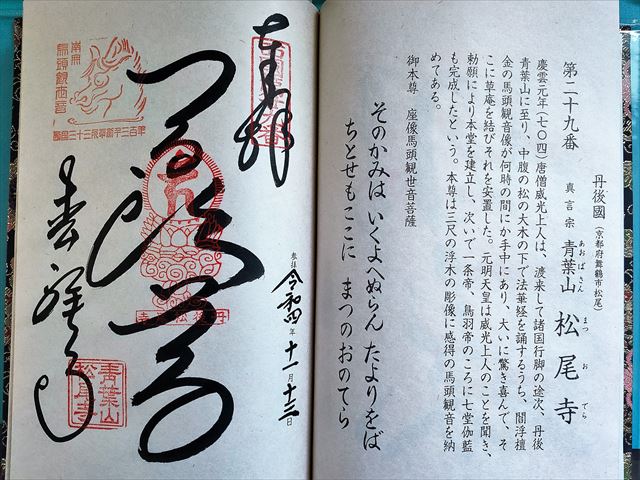 丹後國(京都府舞鶴市松尾)
第二十九番 真言宗 青葉山 松尾寺
あおばさん まつ お でら
慶雲元年(七〇四)唐僧威光上人は、渡来して諸国行脚の途次、丹後
青葉山に至り、中腹の松の大木の下で法華経を誦するうち、閻浮檀
金の馬頭観音像が何時の間にか手中にあり、大いに驚き喜んで、そ
こに草庵を結びそれを安置した。元明天皇は威光上人のことを聞き、
勅願により本堂を建立し、次いで一条帝、鳥羽帝のころに七堂伽藍
も完成したという。本尊は三尺の浮木の彫像に感得の馬頭観音を納
めてある。
御本尊 座像馬頭観世音菩薩
そのかみは いくよへぬらん たよりをば
ちとせもここに まつのおのてら
奉拝
参拝 令和四年十一月十三日
松尾寺
青葉山
松尾寺
南無
馬頭観世音